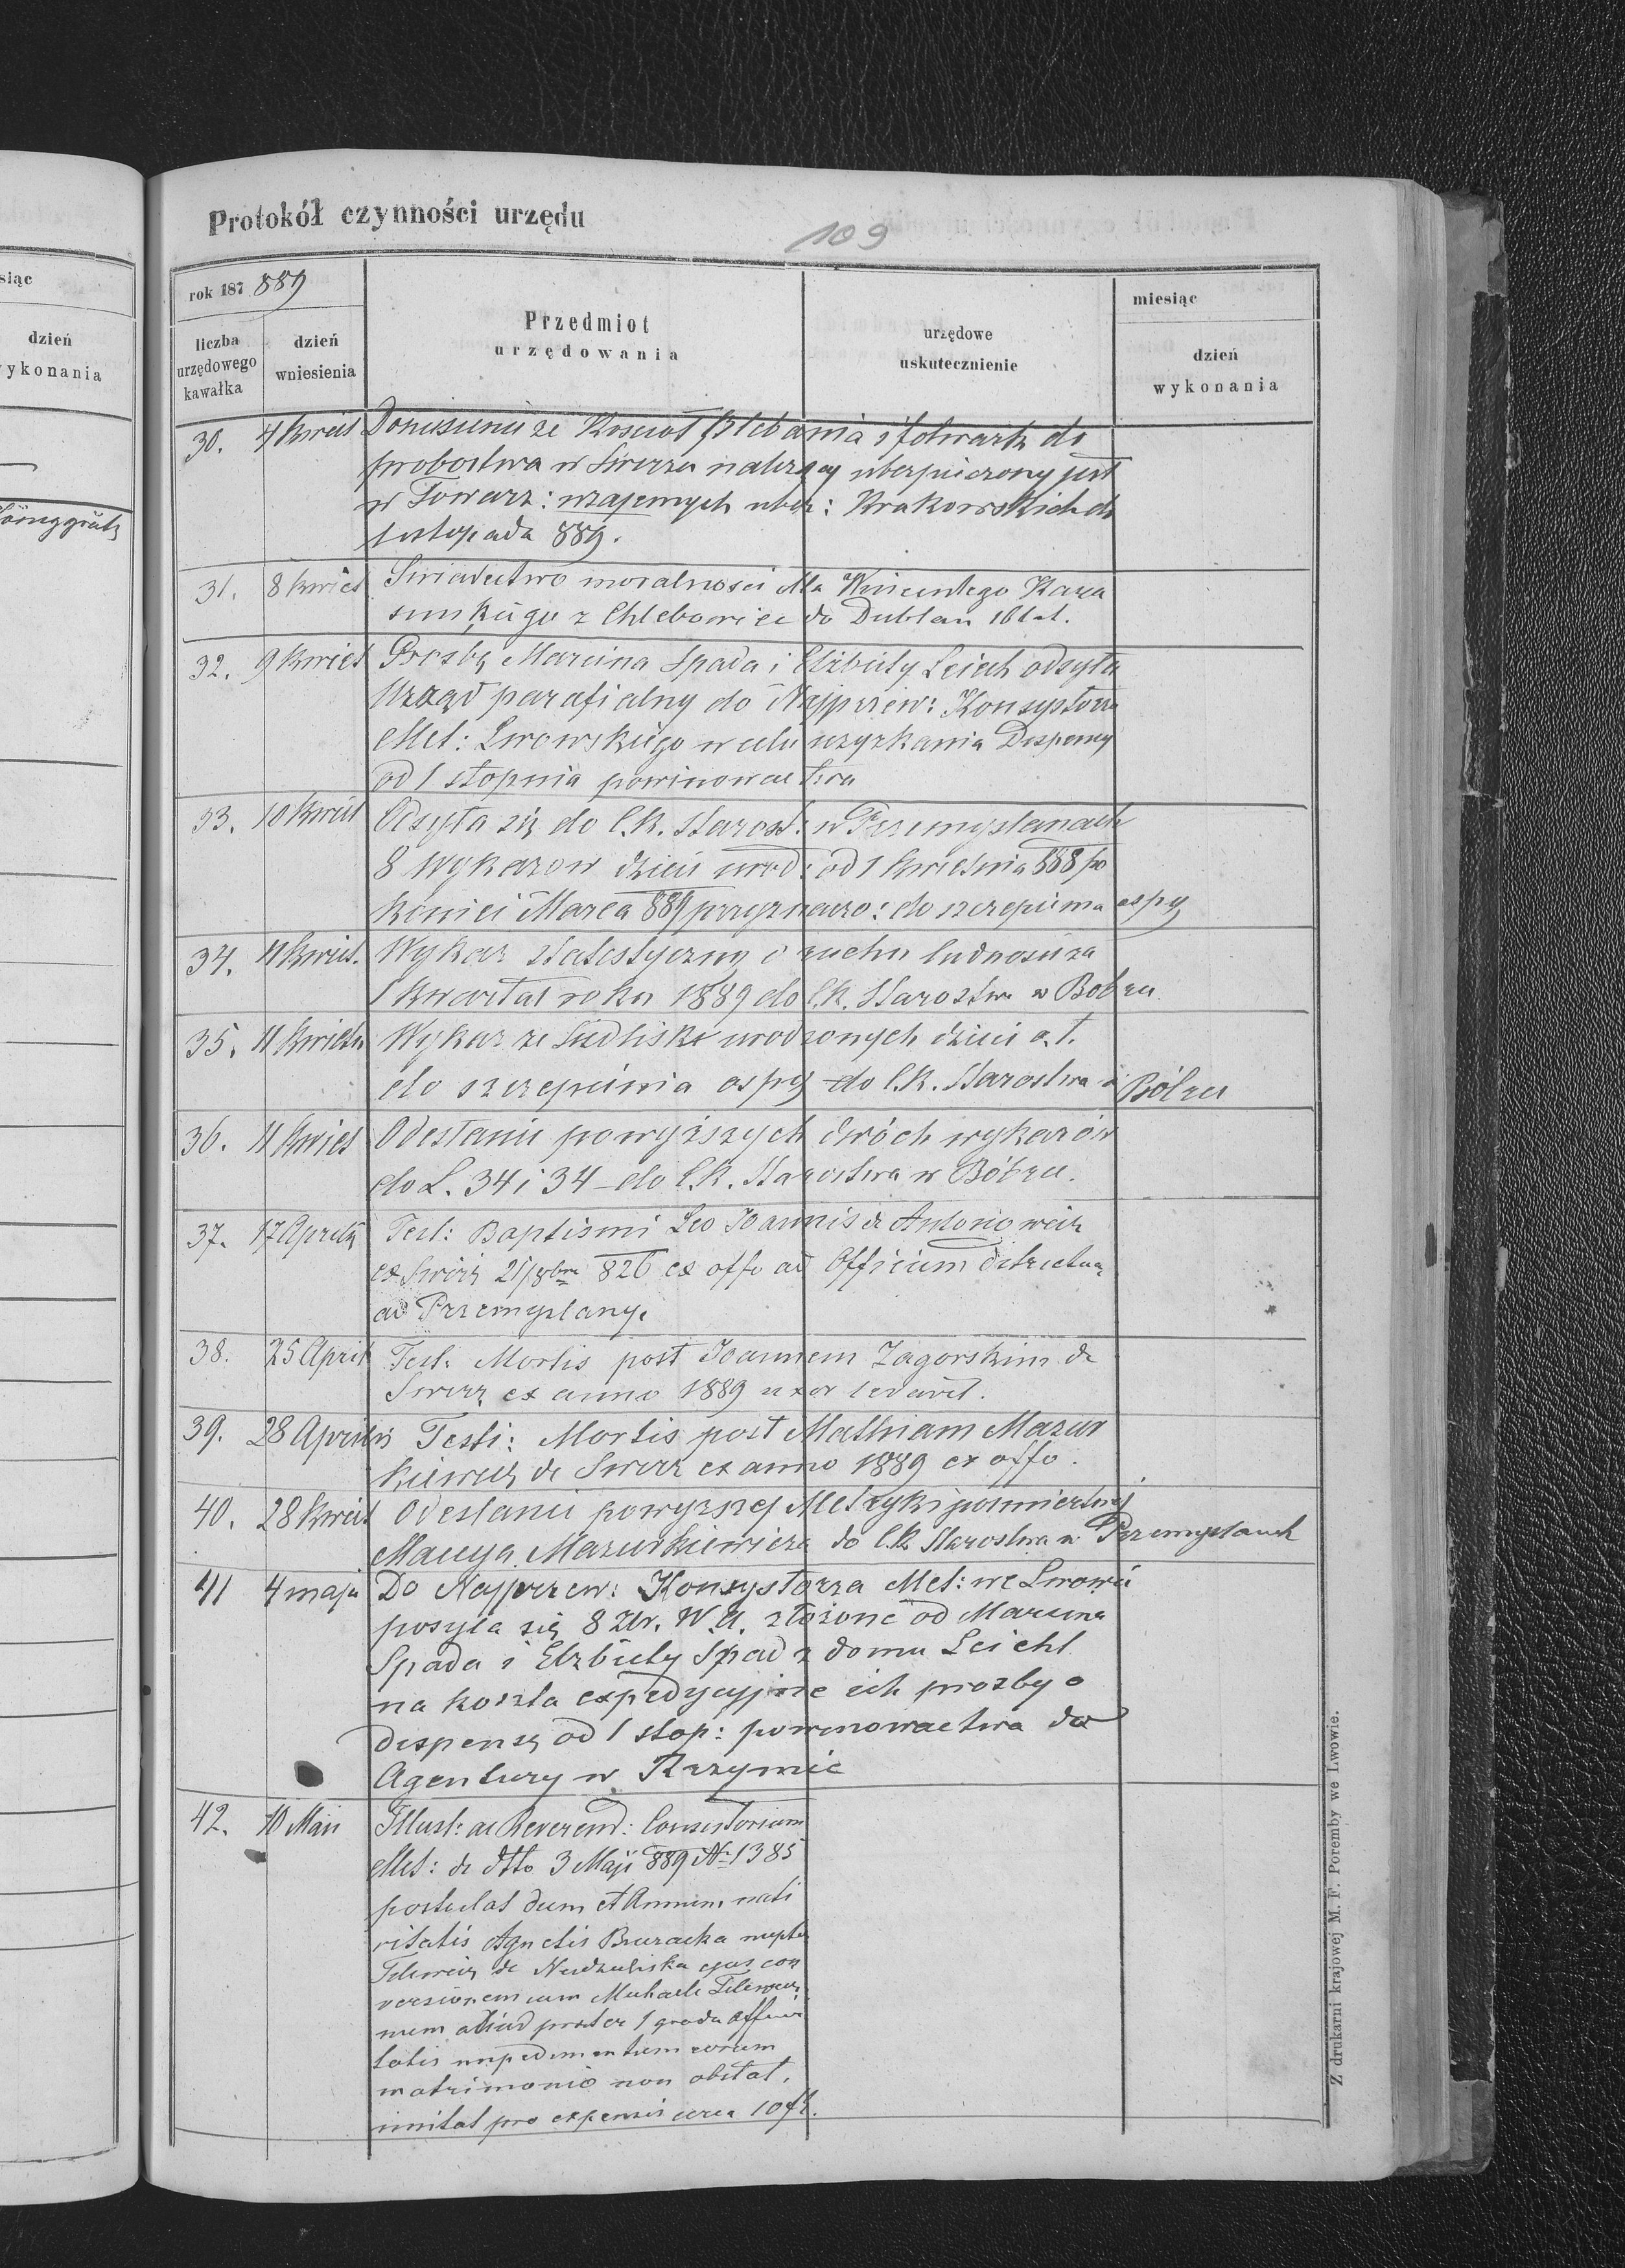 Protokół czynności urzędu
109
siąc
dzień
wykonania
Königgrätz
rok 187 889
liczba urzędowego kawałka
dzień wniesienia
Przedmiot urzędowania
urzędowe uskutecznienie
miesiąc
dzień wykonania
30. 4 Kwiet Doniesienie że Koscioł plebania i folwark do
probostwa w Swirzu należący ubezpieczony jest
w Towarz: wzajemnych ubez: Krakowskich do
listopada 889.
31. 8 Kwiet Swiadectwo moralności dla Wincentego Kara
sinskiego z Chlebowiec do Dublan 16 l.
32. 9 Kwiet Prosbę Marcina Spada i Elżbiety Leich odsyła
Urząd parafialny do Najprzew: Konsystorza
Met: Lwowskiego w celu uzyskania Dyspensy
od 1 stopnia powinowactwa
33. 10 Kwiet Odsyła się do C.K. Starost: w Przemyslanach
8 Wykazow dzieci urod: od 1 Kwietnia 888 po
koniec Marca 889 przeznaczo: do szczepienia ospy
34. 11 Kwiet. Wykaz statystyczny o ruchu ludnosci za
1 kwartał roku 1889 do C.K. Starostwa w Bobrce
35. 11 Kwietn Wykaz ze Siedlisk urodzonych dzieci a.t.
do szczepienia ospy do C.K. Starostwa w Bóbrce
36. 11 Kwiet Odesłanie powyższych dwóch wykazów
do L. 34 i 34 – do C.K. Starostwa w Bóbrce.
37. 17 Aprilis Test: Baptismi Leo Joannis de Antonowicz
ex Swirz 21/8bre 826 ex offo ad Officium districtus
ad Przemyslany.
38. 25 April Test: Mortis post Joannem Zagorskim de
Swirz ex anno 1889 uxor
39. 28 Aprilis Testi: Mortis post Mathiam Mazur
kiewicz de Swirz ex anno 1889 ex offo.
40. 28 Kwiet Odeslanie powyzszej Metryki posmiertnej
Macieja Mazurkiewicza do C.K. Starostwa w Przemyslanach
41 4 maja Do Najprzew: Konsystorza Met: we Lwowie
posyła się 8 Złr. W.A. złożone od Marcina
Spada i Elzbiety Spad z domu Leicht
na koszta expedycyjne ich prozby o
dispensę od 1 stop: powinowactwa do
Agentury w Rzymie
42. 10 Maii Illust: ac Reverend: Consistorium
Met: de dtto 3 Maji 889 No 1385
postulat dum et Annum nati
vitatis Agnetis Buracka nupta
Telewicz de Niedzieliska ejus con
versionem cum Michaele Telewicz
num aliud praeter 1 gradu affini
tatis impedimentum eorum
matrimonio non obstat,
imitat pro expensis circa 10 fl.
Z drukarni krajowej M. F. Poremby we Lwowie.